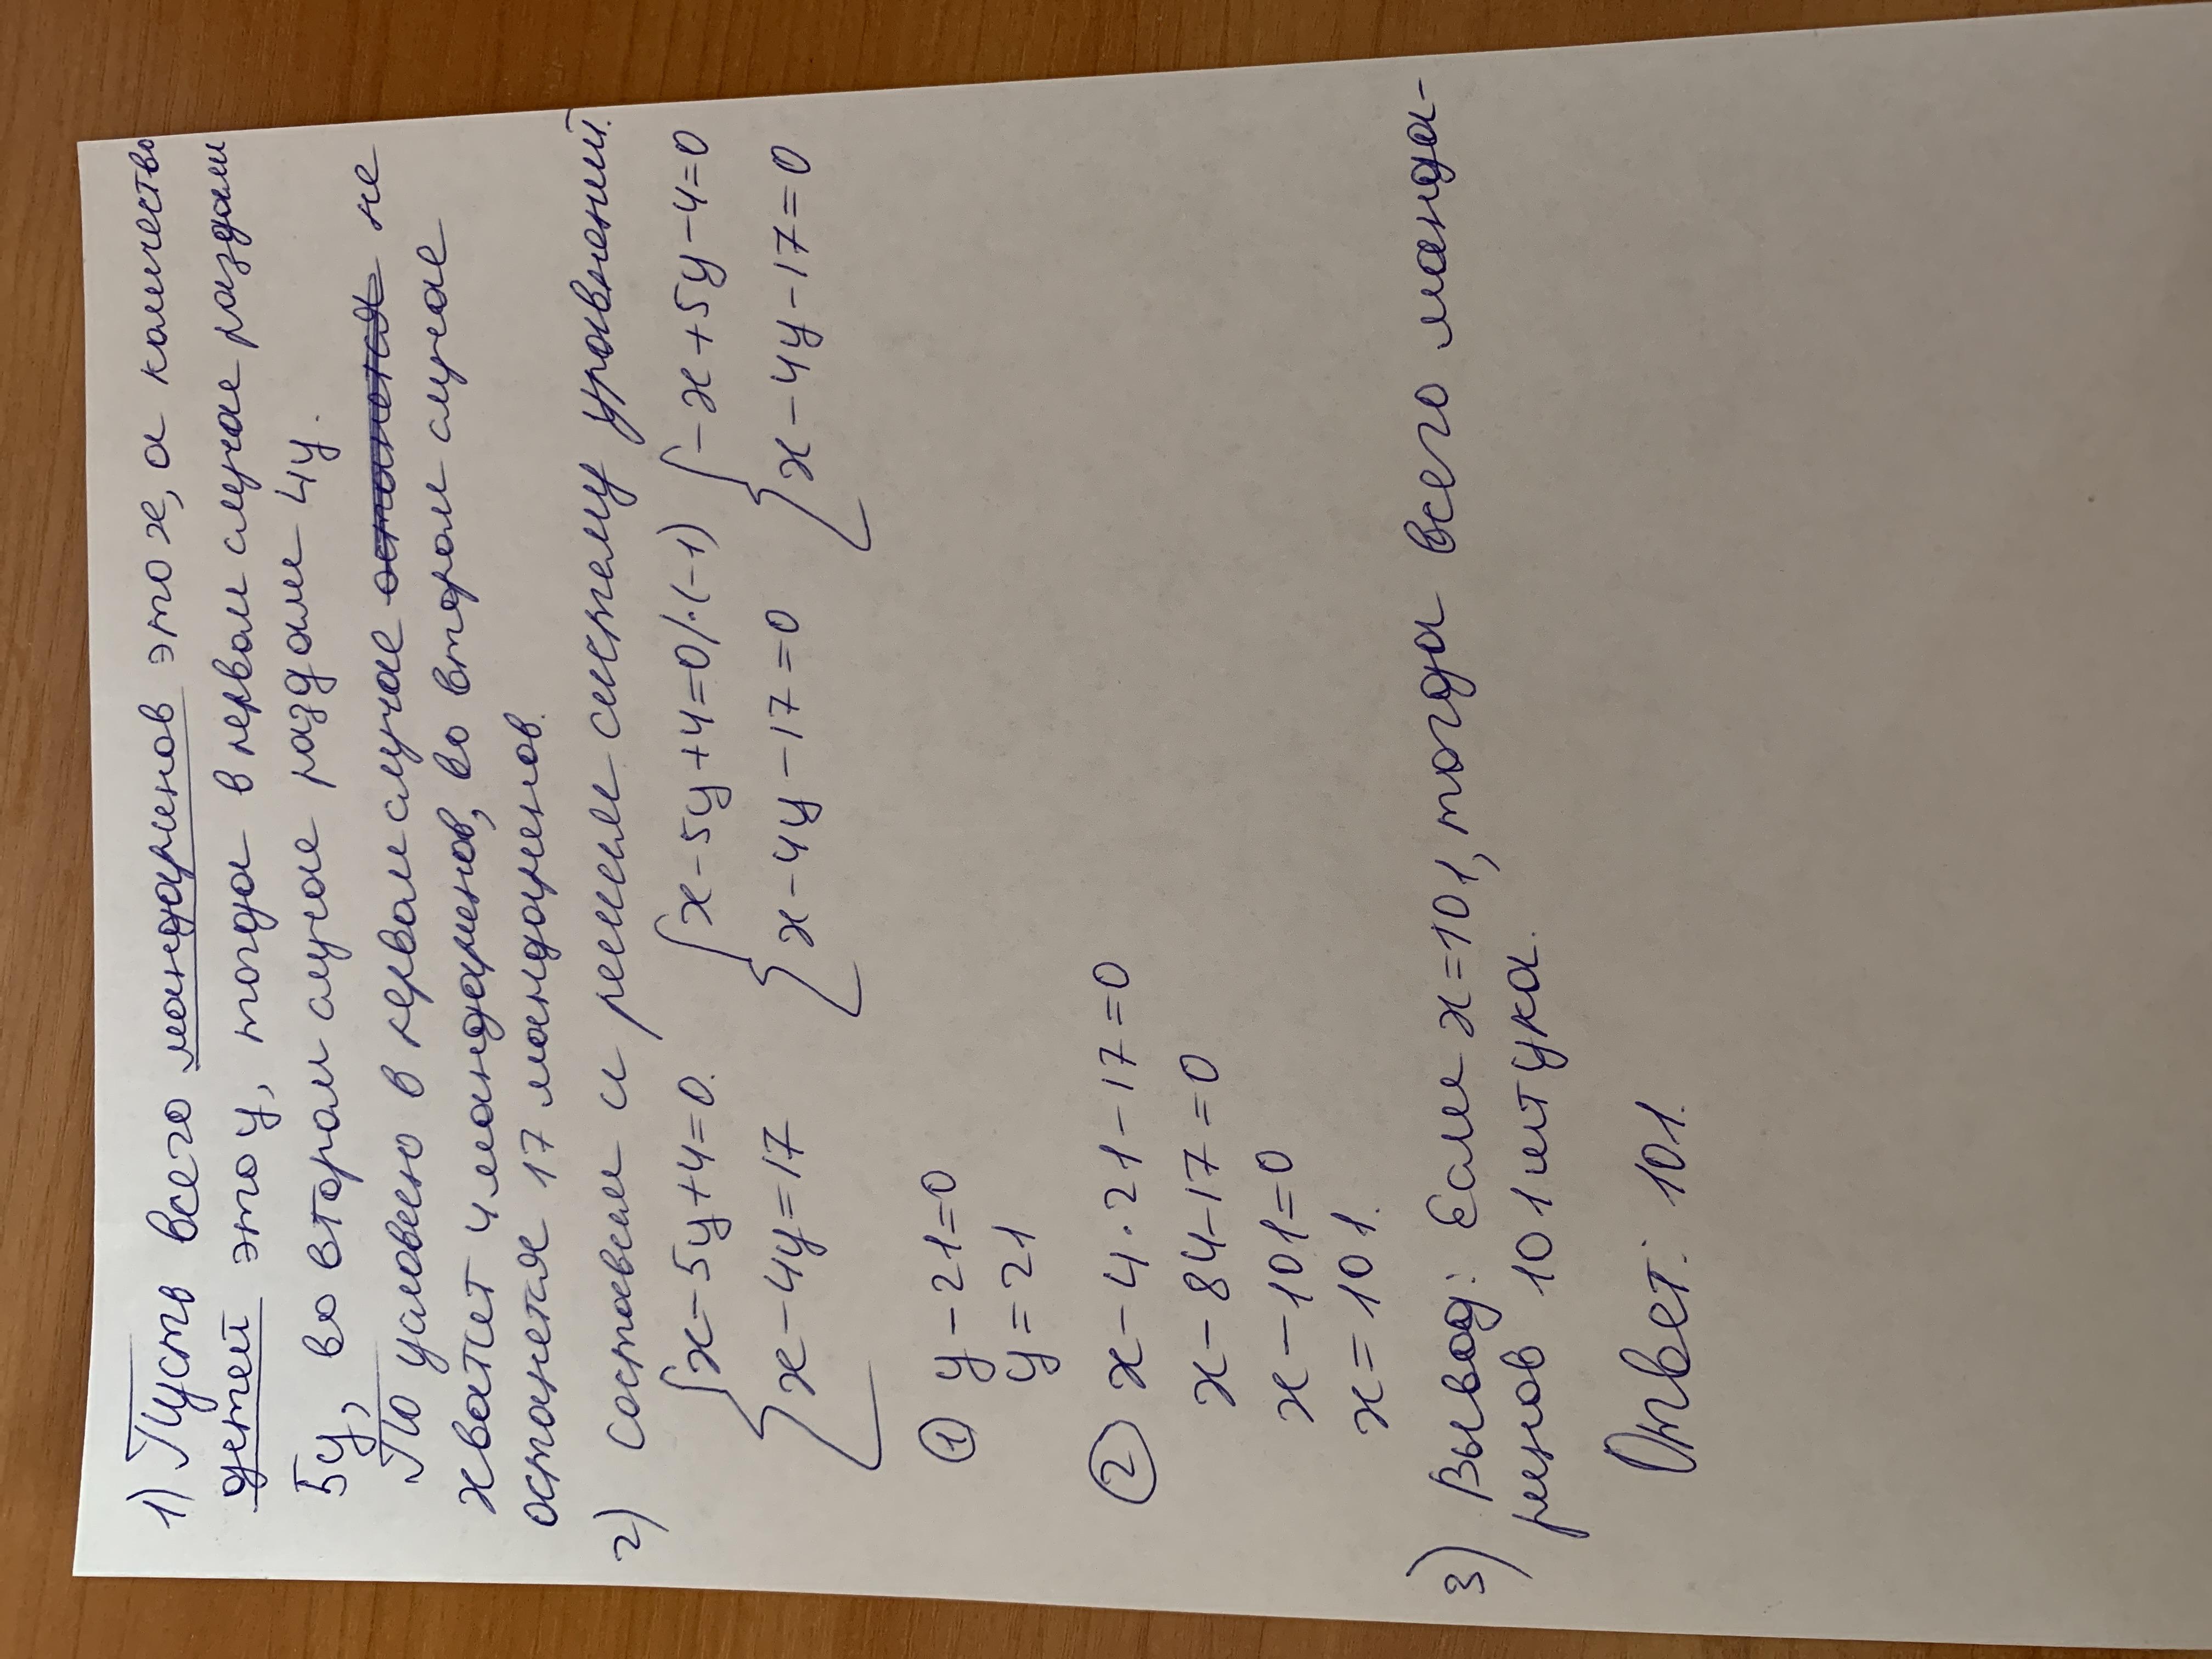 1) Пусть всего мандаринов это x, а количество
детей это y, тогда в первом случае раздали
5y, во втором случае раздали 4y.
По условию в первом случае останется не
хватит 4 мандаринов, во втором случае
останется 17 мандаринов.
2) Составим и решим систему уравнений.
{x-5y+4=0. {x-5y+4=0/·(-1) {-x+5y-4=0
x-4y=17 x-4y-17=0 x-4y-17=0
① y-21=0
y=21
② x-4·21-17=0
x-84-17=0
x-101=0
x=101.
3) Вывод: Если x=101, тогда всего манда-
ринов 101 штука.
Ответ: 101.